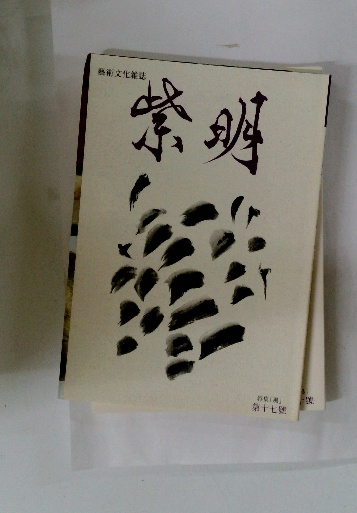 藝術文化雑誌
紫明
第十七號
號